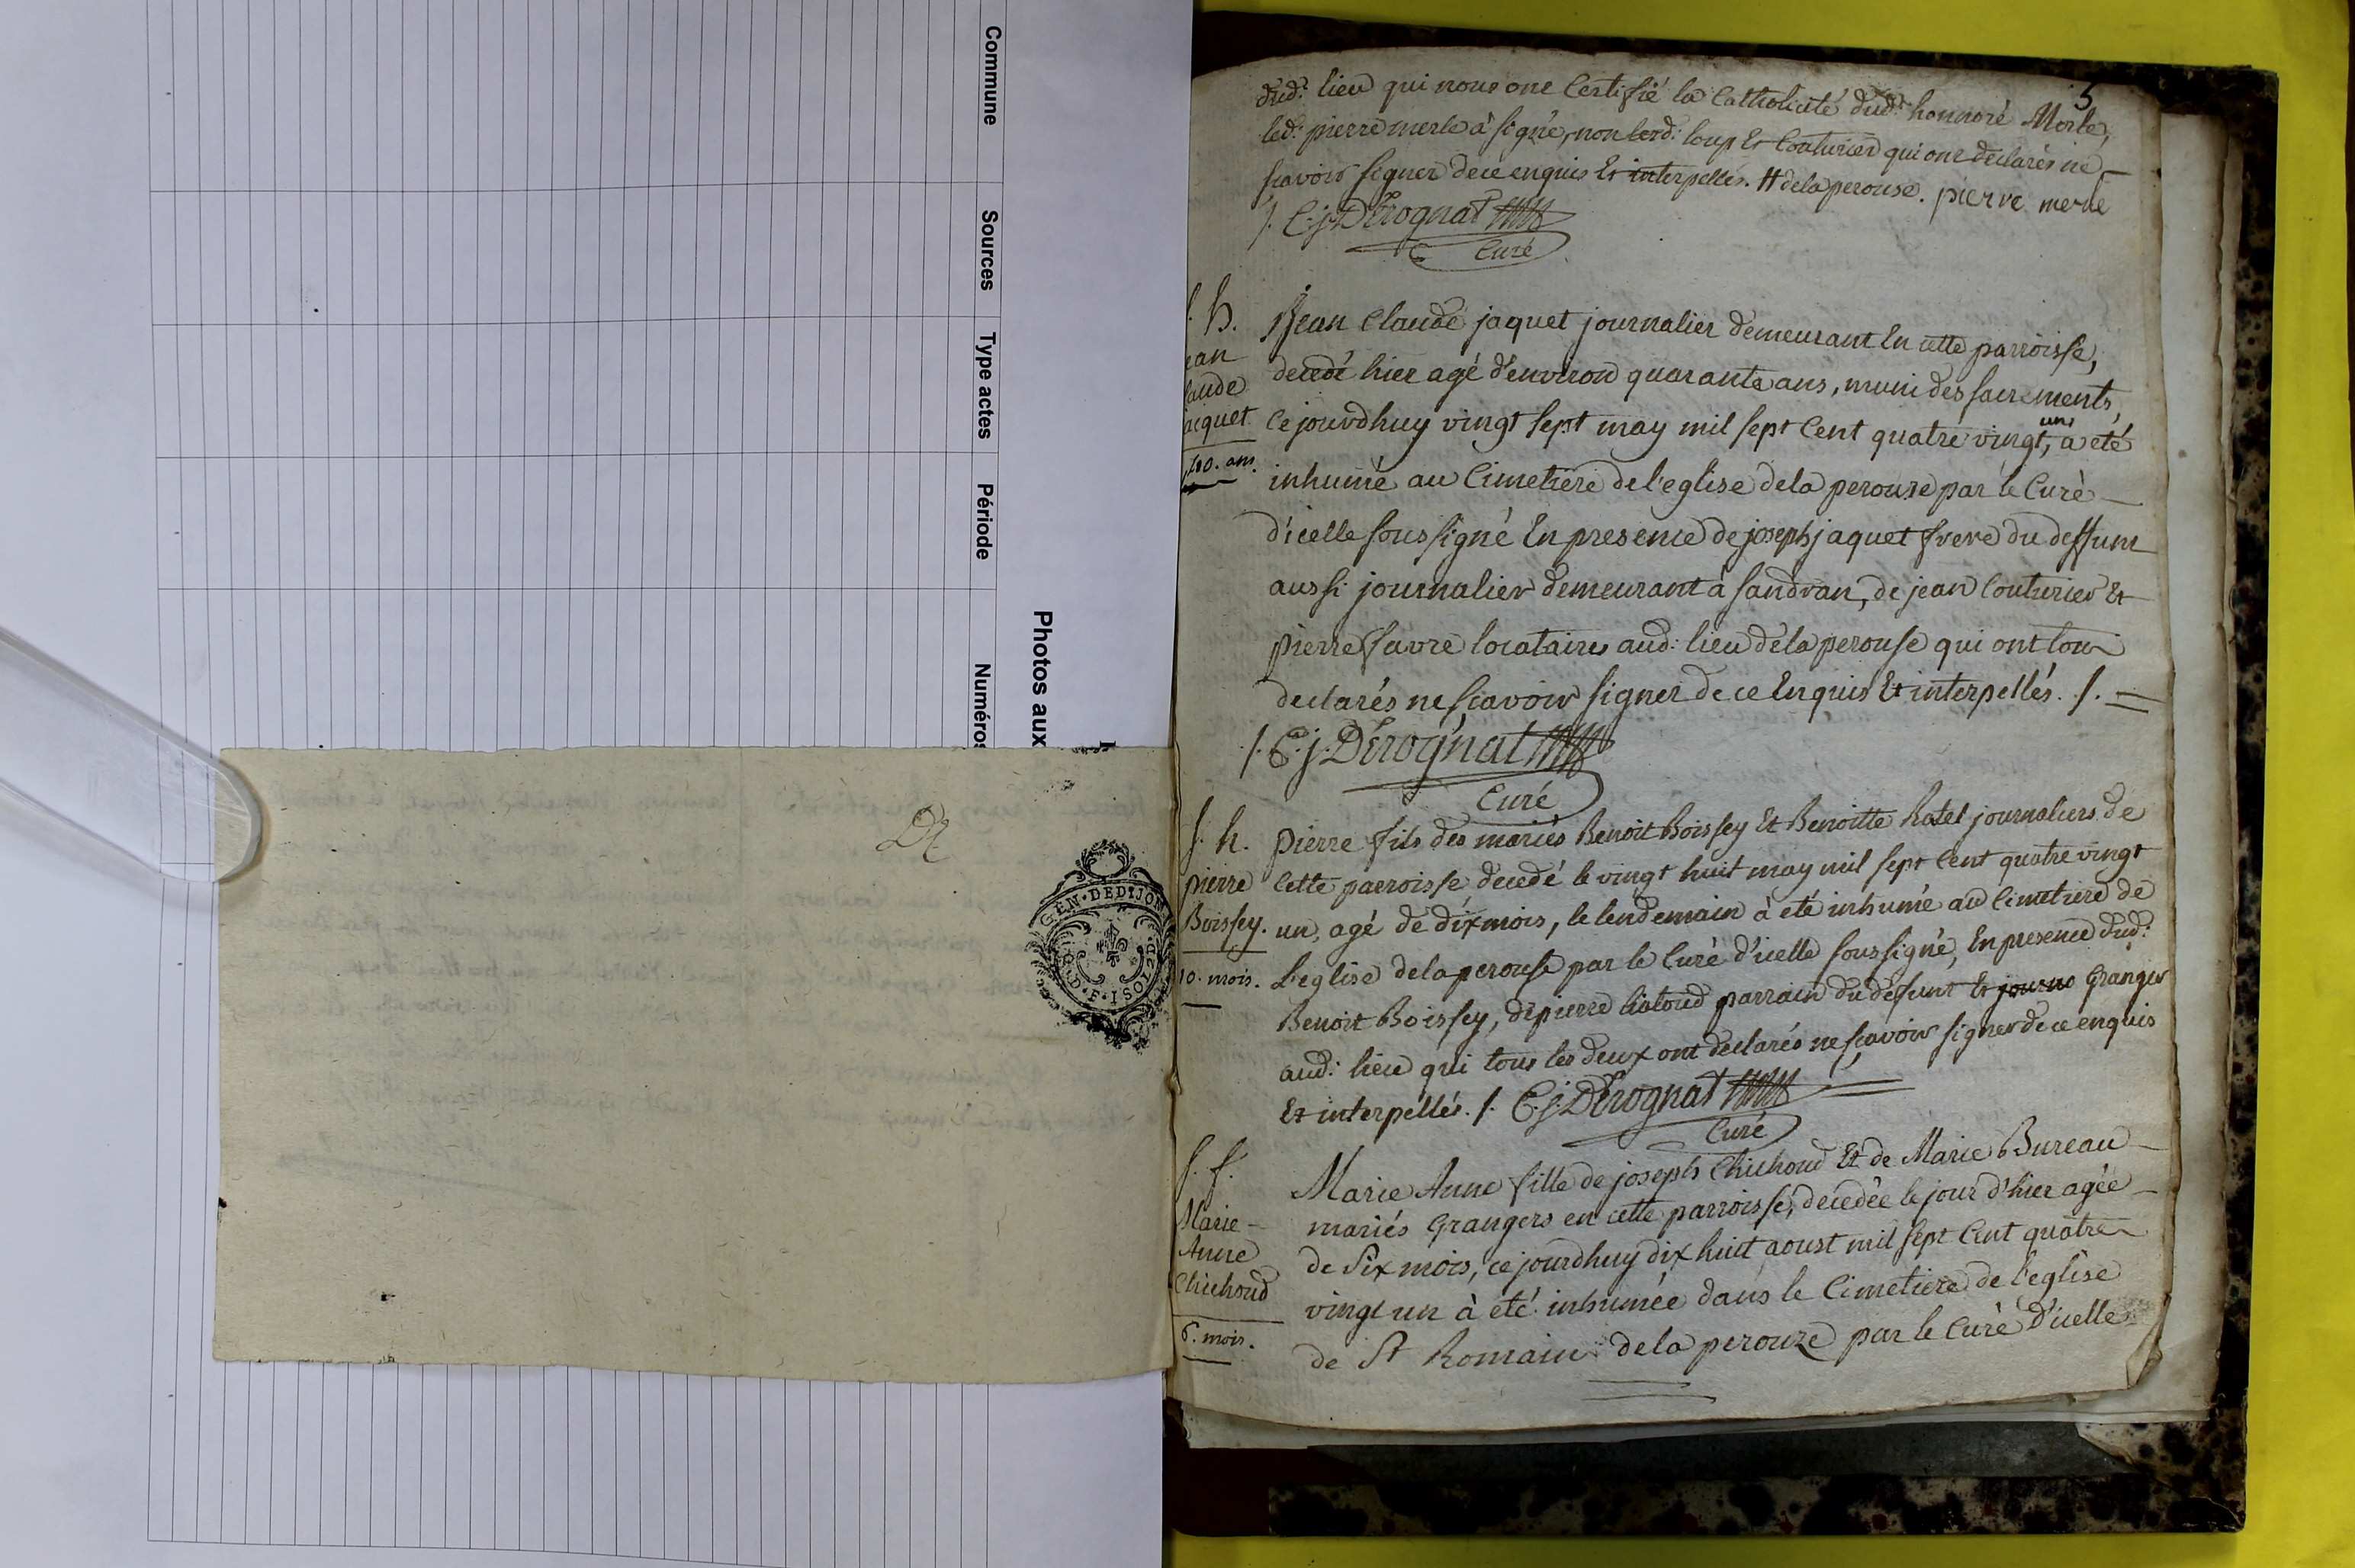 Commune
Sources
Type actes
Période
Numéros
Photos aux
GEN·DE DIJON
3
dud: lieu qui nous ont Certifié la Catholicité dud: honnoré Merle,
led: pierre merle à signé, non lesd: loup Et Couturier qui ont declarés ne
scavoir signer de ce enquis Et interpellés. # dela perouse. pierre merle
/. C.j. Dérognat
Curé
S. h.
ean
laude
acquet
40. ans.
Jean Claude jaquet journalier demeurant En cette parroisse,
decedé hier agé d'environ quarante ans, muni des sacrements,
Ce jourdhuy vingt sept may mil sept Cent quatre vingt un, a eté
inhumé au Cimetiere de l'eglise dela perouze par le Curé
d'icelle soussigné En presence de joseph jaquet frere du deffunt
aussi journalier demeurant à sandran, de jean Couturier Et
pierre favre locataires aud: lieu dela perouse qui ont tous
declarés ne scavoir signer de ce Enquis Et interpellés. /. =
/. C.j. Dérognat
Curé
S. h.
pierre
Boissey.
10. mois.
pierre fils des mariés Benoit Boissey Et Benoitte Ratel journaliers de
Cette parroisse decedé le vingt huit may mil sept Cent quatre vingt
un, agé de dix mois, le lendemain à eté inhumé au Cimetiere de
L'eglise dela perouse par le Curé d'icelle soussigné, En presence dud:
Benoit Boissey, de pierre parrain du defunt Et Granger
aud: lieu qui tous les deux ont declarés ne scavoir signer de ce enquis
Et interpellés. /. C.j. Dérognat
Curé
S. f.
Marie
Anne
Chichoud
6. mois.
Marie Anne fille de joseph Chichoud Et de Marie Bureau
mariés Grangers en cette parroisse, decedée le jour d'hier agée
de Six mois, ce jourdhuy dix huit aoust mil sept Cent quatre
vingt un à eté inhumée dans le Cimetiere de l'eglise
de St Romain dela perouze par le Curé d'icelle